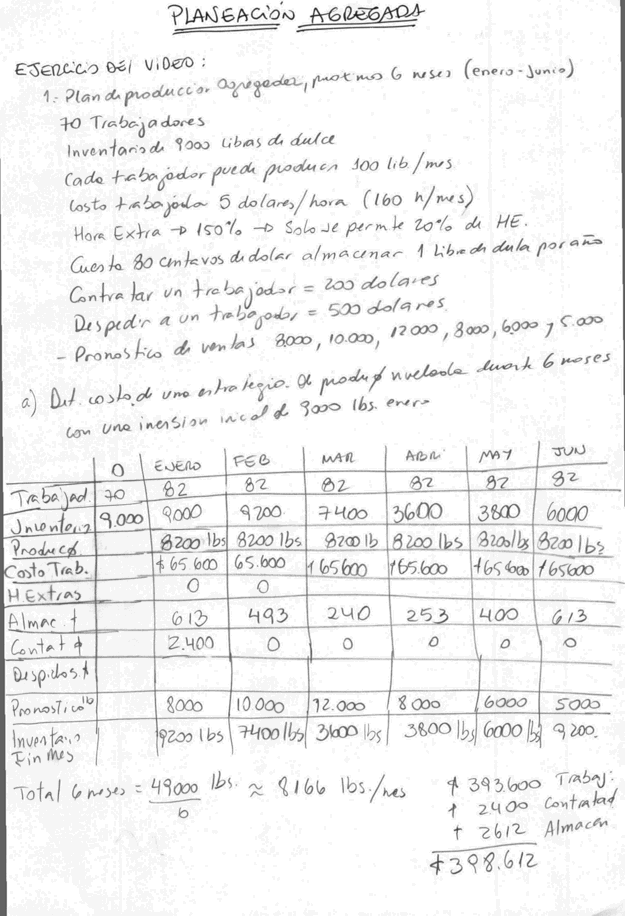 PLANEACIÓN AGREGADA
EJERCICIO DEl VIDEO:
1.- Plan de produccion agregada, proximos 6 meses (enero-Junio)
70 Trabajadores
Inventario de 9000 libras de dulce
Cada trabajador puede producir 100 lib/mes
Costo trabajador 5 dolares/hora (160 h/mes)
Hora Extra → 150% → Solo se permite 20% de HE.
Cuesta 80 centavos de dolar almacenar 1 libra de dulce por año
Contratar un trabajador = 200 dolares
Despedir a un trabajador = 500 dolares
- Pronostico de ventas 8000, 10.000, 12000, 8000, 6000 y 5.000
a) Det. costo de una estrategia de produc nivelada durante 6 meses
con una inersion inical d 9000 lbs. enero
0 ENERO FEB MAR ABRI MAY JUN
Trabajad. 70 82 82 82 82 82 82
Inventario 9.000 9000 9200 7400 3600 3800 6000
Producc 8200 lbs 8200 lbs 8200 lb 8200 lbs 8200 lbs 8200 lbs
Costo Trab. $65 600 65.600 $65600 $65.600 $65600 $65600
H Extras 0 0
Almac. $ 613 493 240 253 400 613
Contat $ 2.400 0 0 0 0 0
Despidos. $
Pronostico lb 8000 10.000 12.000 8000 6000 5000
Inventario Fin mes 9200 lbs 7400 lbs 3600 lbs 3800 lbs 6000 lbs 9200.
Total 6 meses = 49000 lbs. ≈ 8166 lbs./mes
6
$ 393.600 Trabaj:
$ 2400 Contratad
$ 2612 Almacen
$398.612